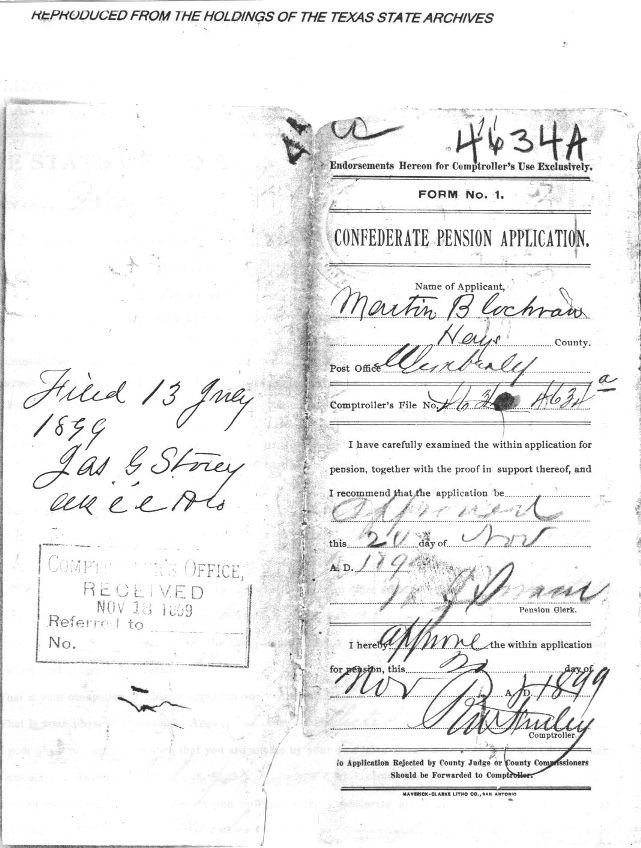 REPRODUCED FROM THE HOLDINGS OF THE TEXAS STATE ARCHIVES
Filed 13 July
1899
Jas G Storey
COMPTROLLER'S OFFICE,
RECEIVED
NOV 18 1899
Referred to
No.
4634A
Endorsements Hereon for Comptroller's Use Exclusively.
FORM No. 1.
CONFEDERATE PENSION APPLICATION.
Name of Applicant,
Martin B Cochran
Hays County.
Post Office Wimberly
Comptroller's File No. 4634a
I have carefully examined the within application for
pension, together with the proof in support thereof, and
I recommend that the application be
approved
this day of Nov
A. D. 189
Pension Clerk.
I hereby approve the within application
for pension, this day of
Nov A. D. 1899
Comptroller
No Application Rejected by County Judge or County Commissioners
Should be Forwarded to Comptroller.
MAVERICK-CLARKE LITHO CO., SAN ANTONIO